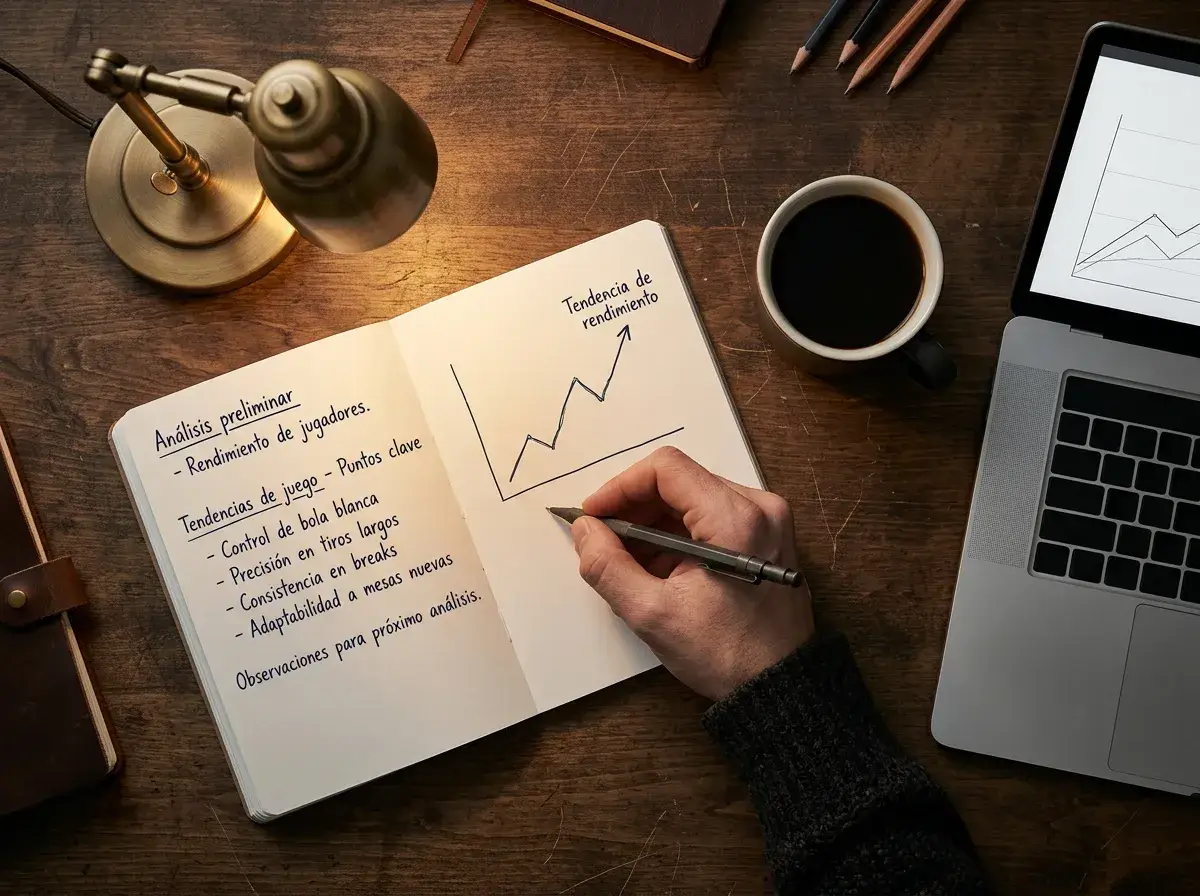 Análisis preliminar
- Rendimiento de jugadores.
Tendencias de juego - Puntos clave
- Control de bola blanca
- Precisión en tiros largos
- Consistencia en breaks
- Adaptabilidad a mesas nuevas
Observaciones para próximo análisis.
Tendencia de
rendimiento